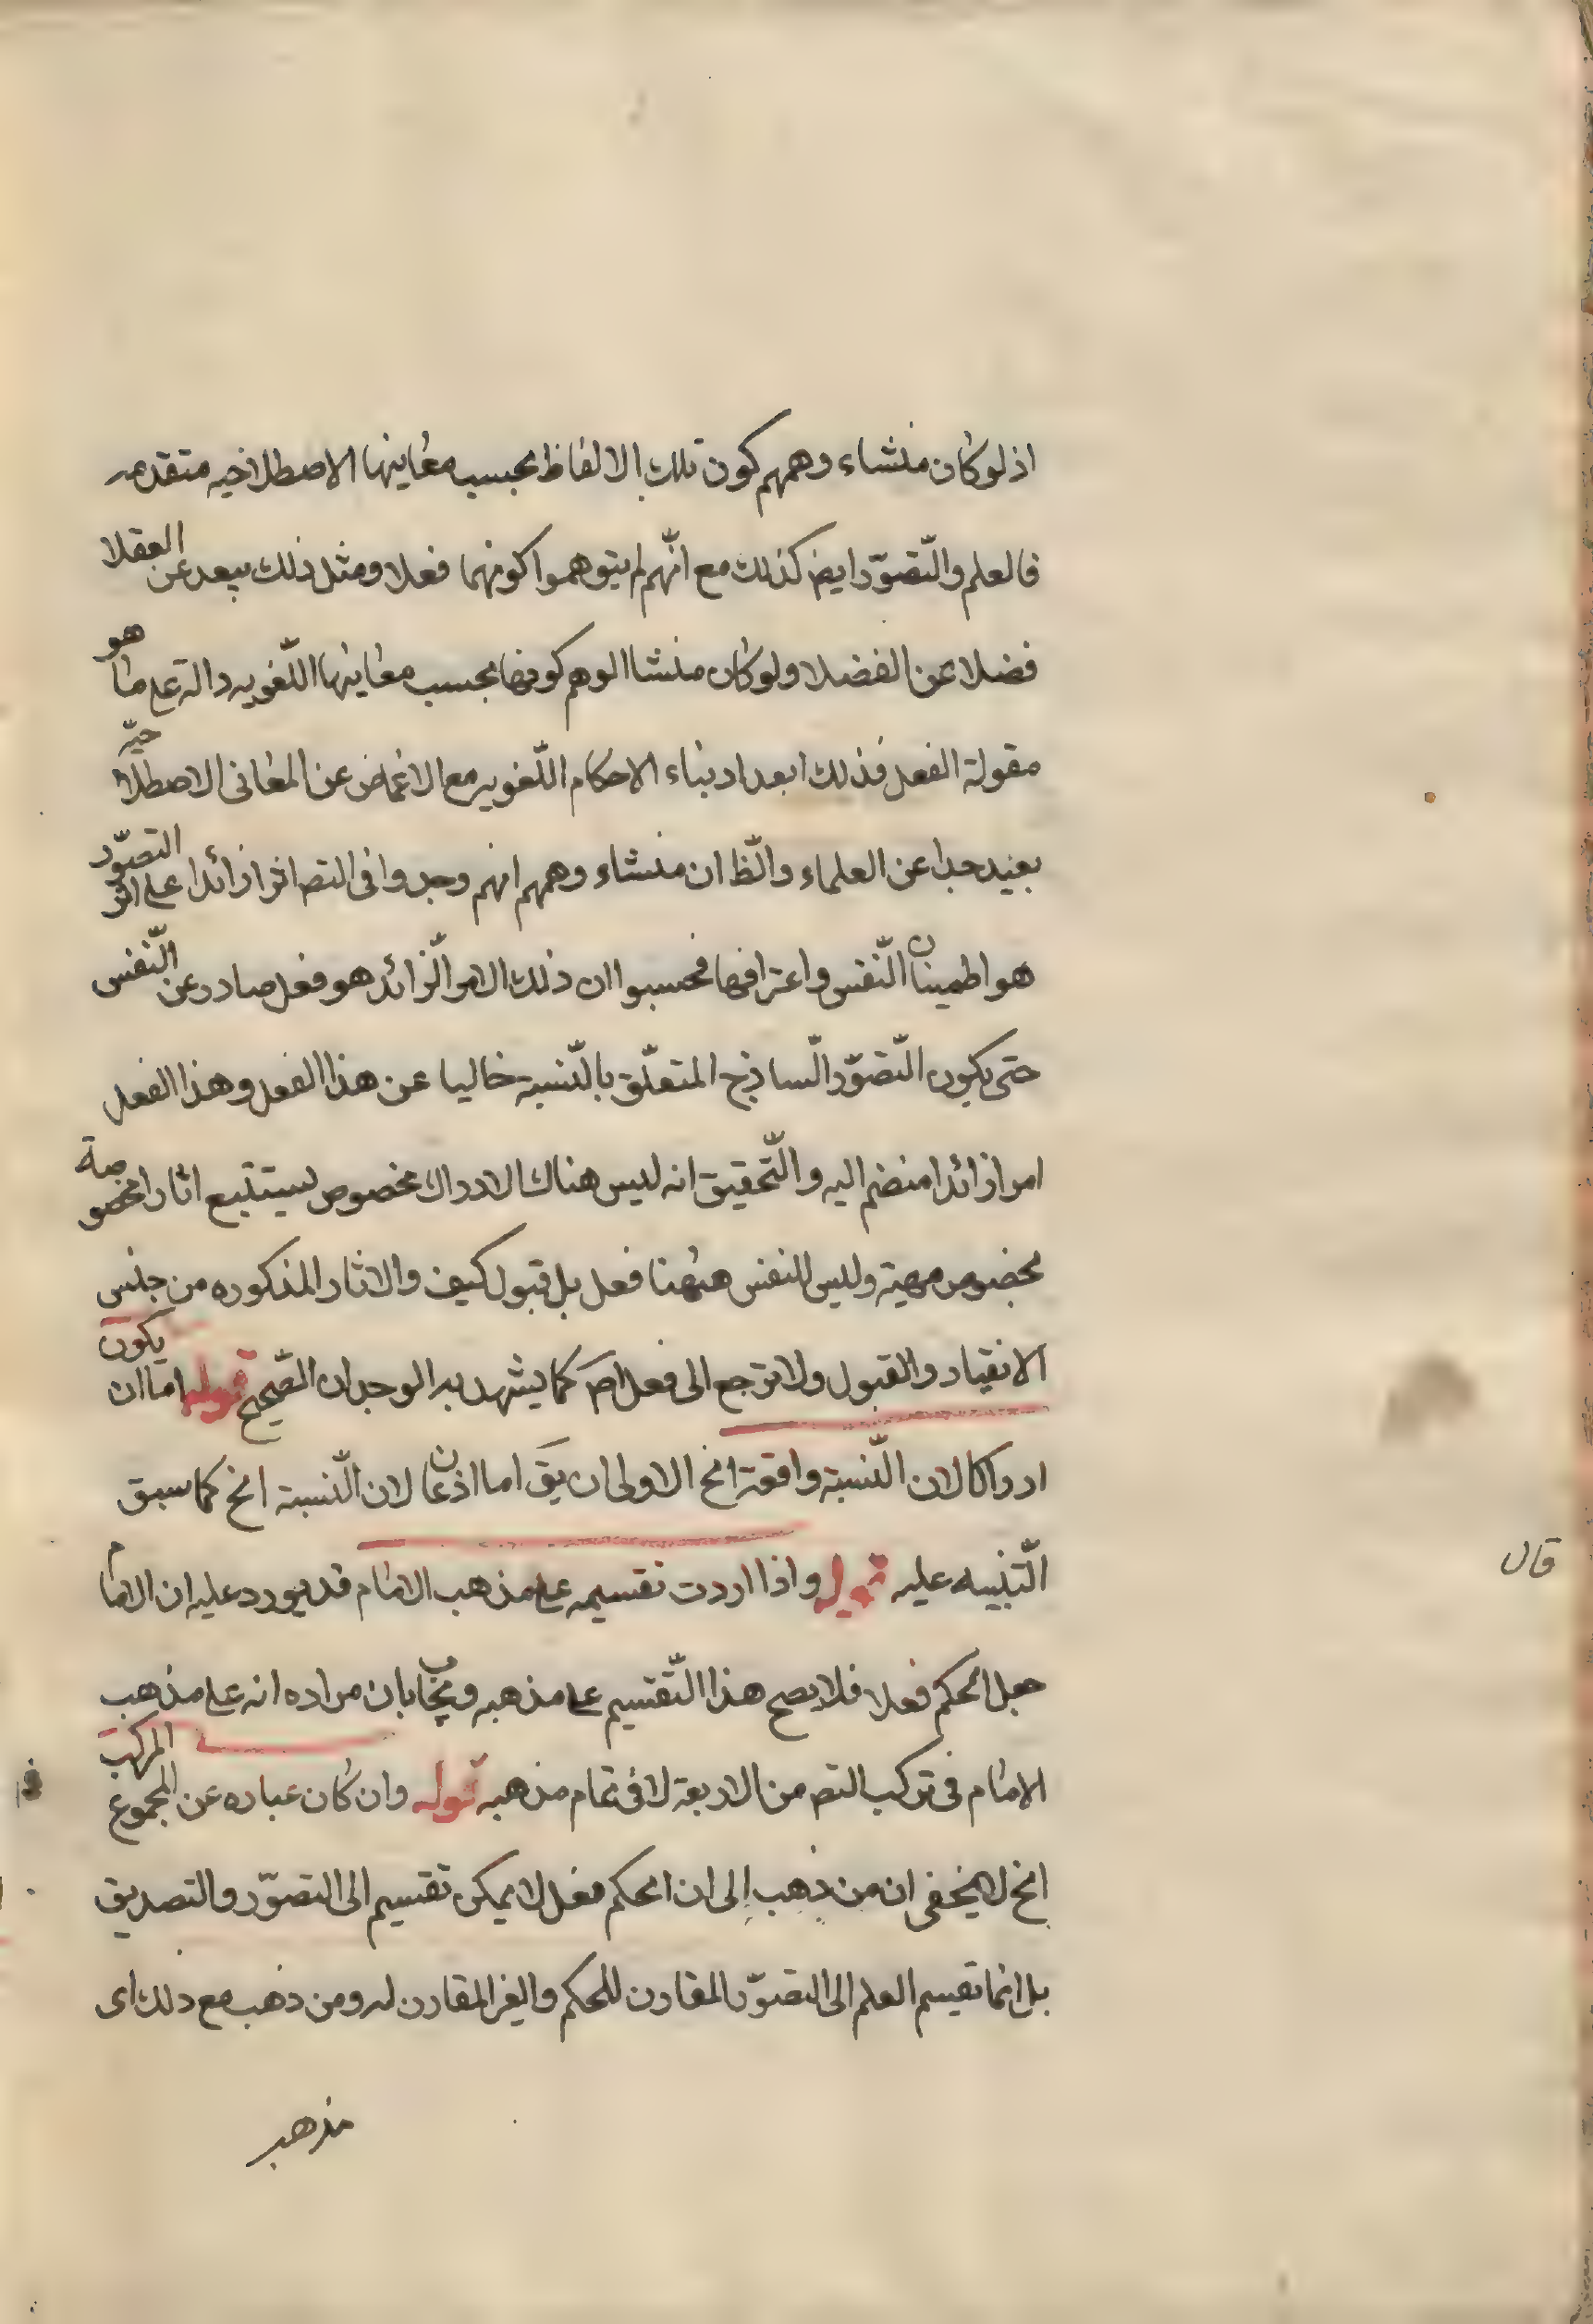 اذ لو كان منشاء وهمهم كون تلك الالفاظ بحسب معاينها الاصطلاحيه متقدمه
فالعلم والتّصوّر ايض كذلك مع انّهم لم يتوهموا كونهما فعلا ومثل ذلك يبعد عن العقلا
فضلا عن الفضلا ولو كان منشا الوهم كونها بحسب معاينها اللّغويه دالة على ما هو
مقولة الفعل فذلك ابعد اذ بناء الاحكام اللّغويه مع الاغماض عن المعانى الاصطلاحيّه
بعيد جدا عن العلماء والظّ ان منشاء وهمهم انهم وجدوا فى التص اثرا زائدا على اثر التصوّر
هو اطمينان النّفس واعترافها فحسبوا ان ذلك الامر الزّائد هو فعل صادر عن النّفس
حتى يكون التّصوّر السّاذج المتعلّق بالنّسبة خاليا عن هذا الفعل وهذا الفعل
امرا زائدا منضم اليه والتّحقيق انه ليس هناك الا ادراك مخصوص يستتبع اثارا مخصوصة
بخصوص مهيته وليس للنفس هيهنا فعل بل قبول كيف والاثار المذكوره من جنس
الانقياد والقبول ولا ترجع الى فعل اص كما يشهد به الوجدان الصّحيح قوله اما ان يكون
ادراكا لان النّسبة واقعة الخ الاولى ان يق اما اذعان لان النّسبة الخ كما سبق
التّنبيه عليه قوله واذا اردت تقسيمه على مذهب الامام قد يورد عليه ان الامام
جعل الحكم فعلا فلا يصح هذا التّقسيم على مذهبه ويجاب بان مراده انه على مذهب
الامام فى تركب التص من الاربعة لا فى تمام مذهبه قوله وان كان عباره عن المجموع المركب
الخ لا يخفى ان من ذهب الى ان الحكم فعل لا يمكن تقسيم الى التصوّر والتصديق
بل انما تقسيم العلم الى التصوّر المقارن للحكم والغير المقارن له ومن ذهب مع ذلك اى
مذهب
قال